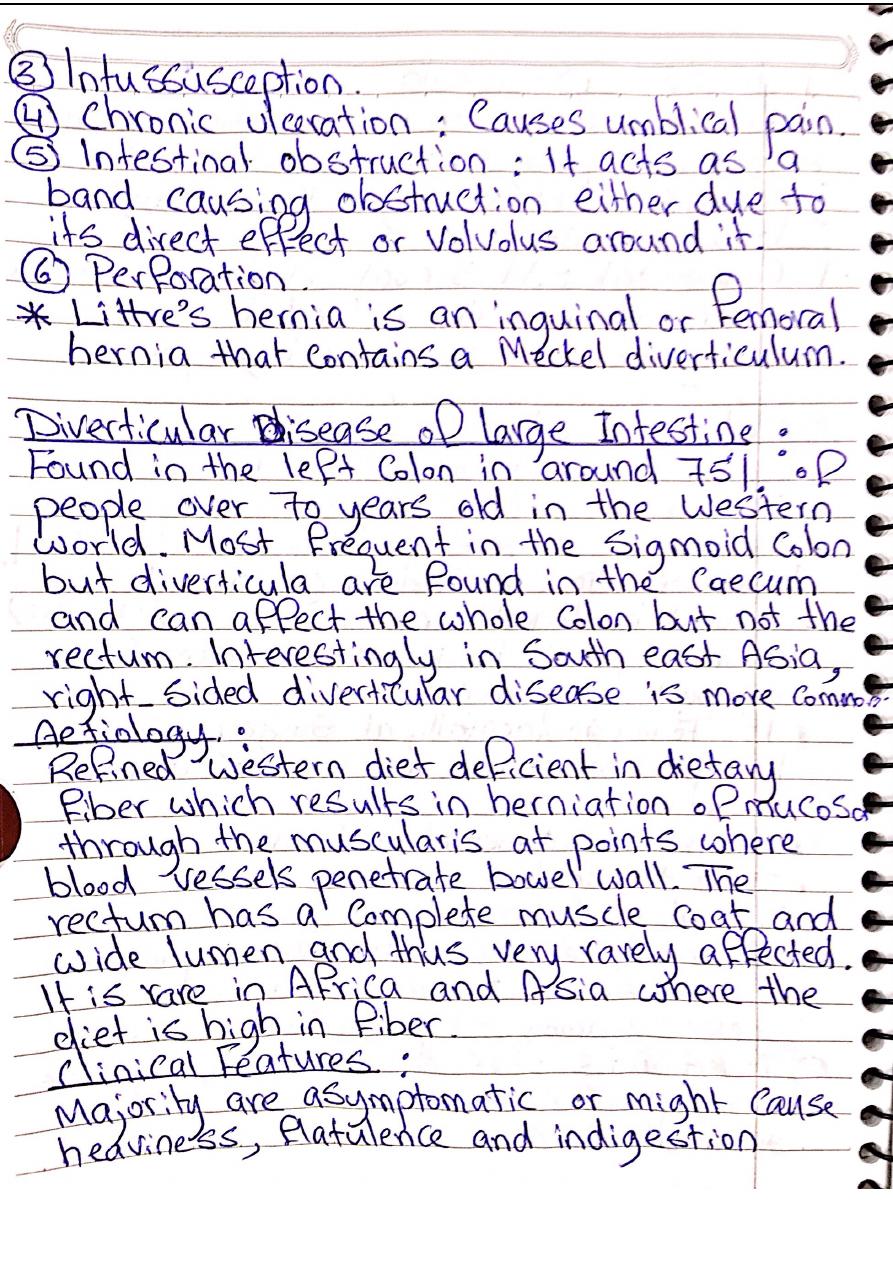 ③ Intussusception.
④ Chronic ulceration : Causes umblical pain.
⑤ Intestinal obstruction : It acts as a
band causing obstruction either due to
its direct effect or Volvolus around it.
⑥ Perforation.
* Littre's hernia is an inguinal or femoral
hernia that contains a Meckel diverticulum.
Diverticular Disease of large Intestine :
Found in the left Colon in around 75% of
people over 70 years old in the Western
world. Most frequent in the Sigmoid Colon
but diverticula are found in the Caecum
and can affect the whole Colon but not the
rectum. Interestingly in South east Asia,
right-sided diverticular disease is more common
Aetiology :
Refined Western diet deficient in dietary
fiber which results in herniation of mucosa
through the muscularis at points where
blood vessels penetrate bowel wall. The
rectum has a Complete muscle coat and
wide lumen and thus very rarely affected.
It is rare in Africa and Asia where the
diet is high in fiber.
Clinical Features :
Majority are asymptomatic or might Cause
heaviness, flatulence and indigestion